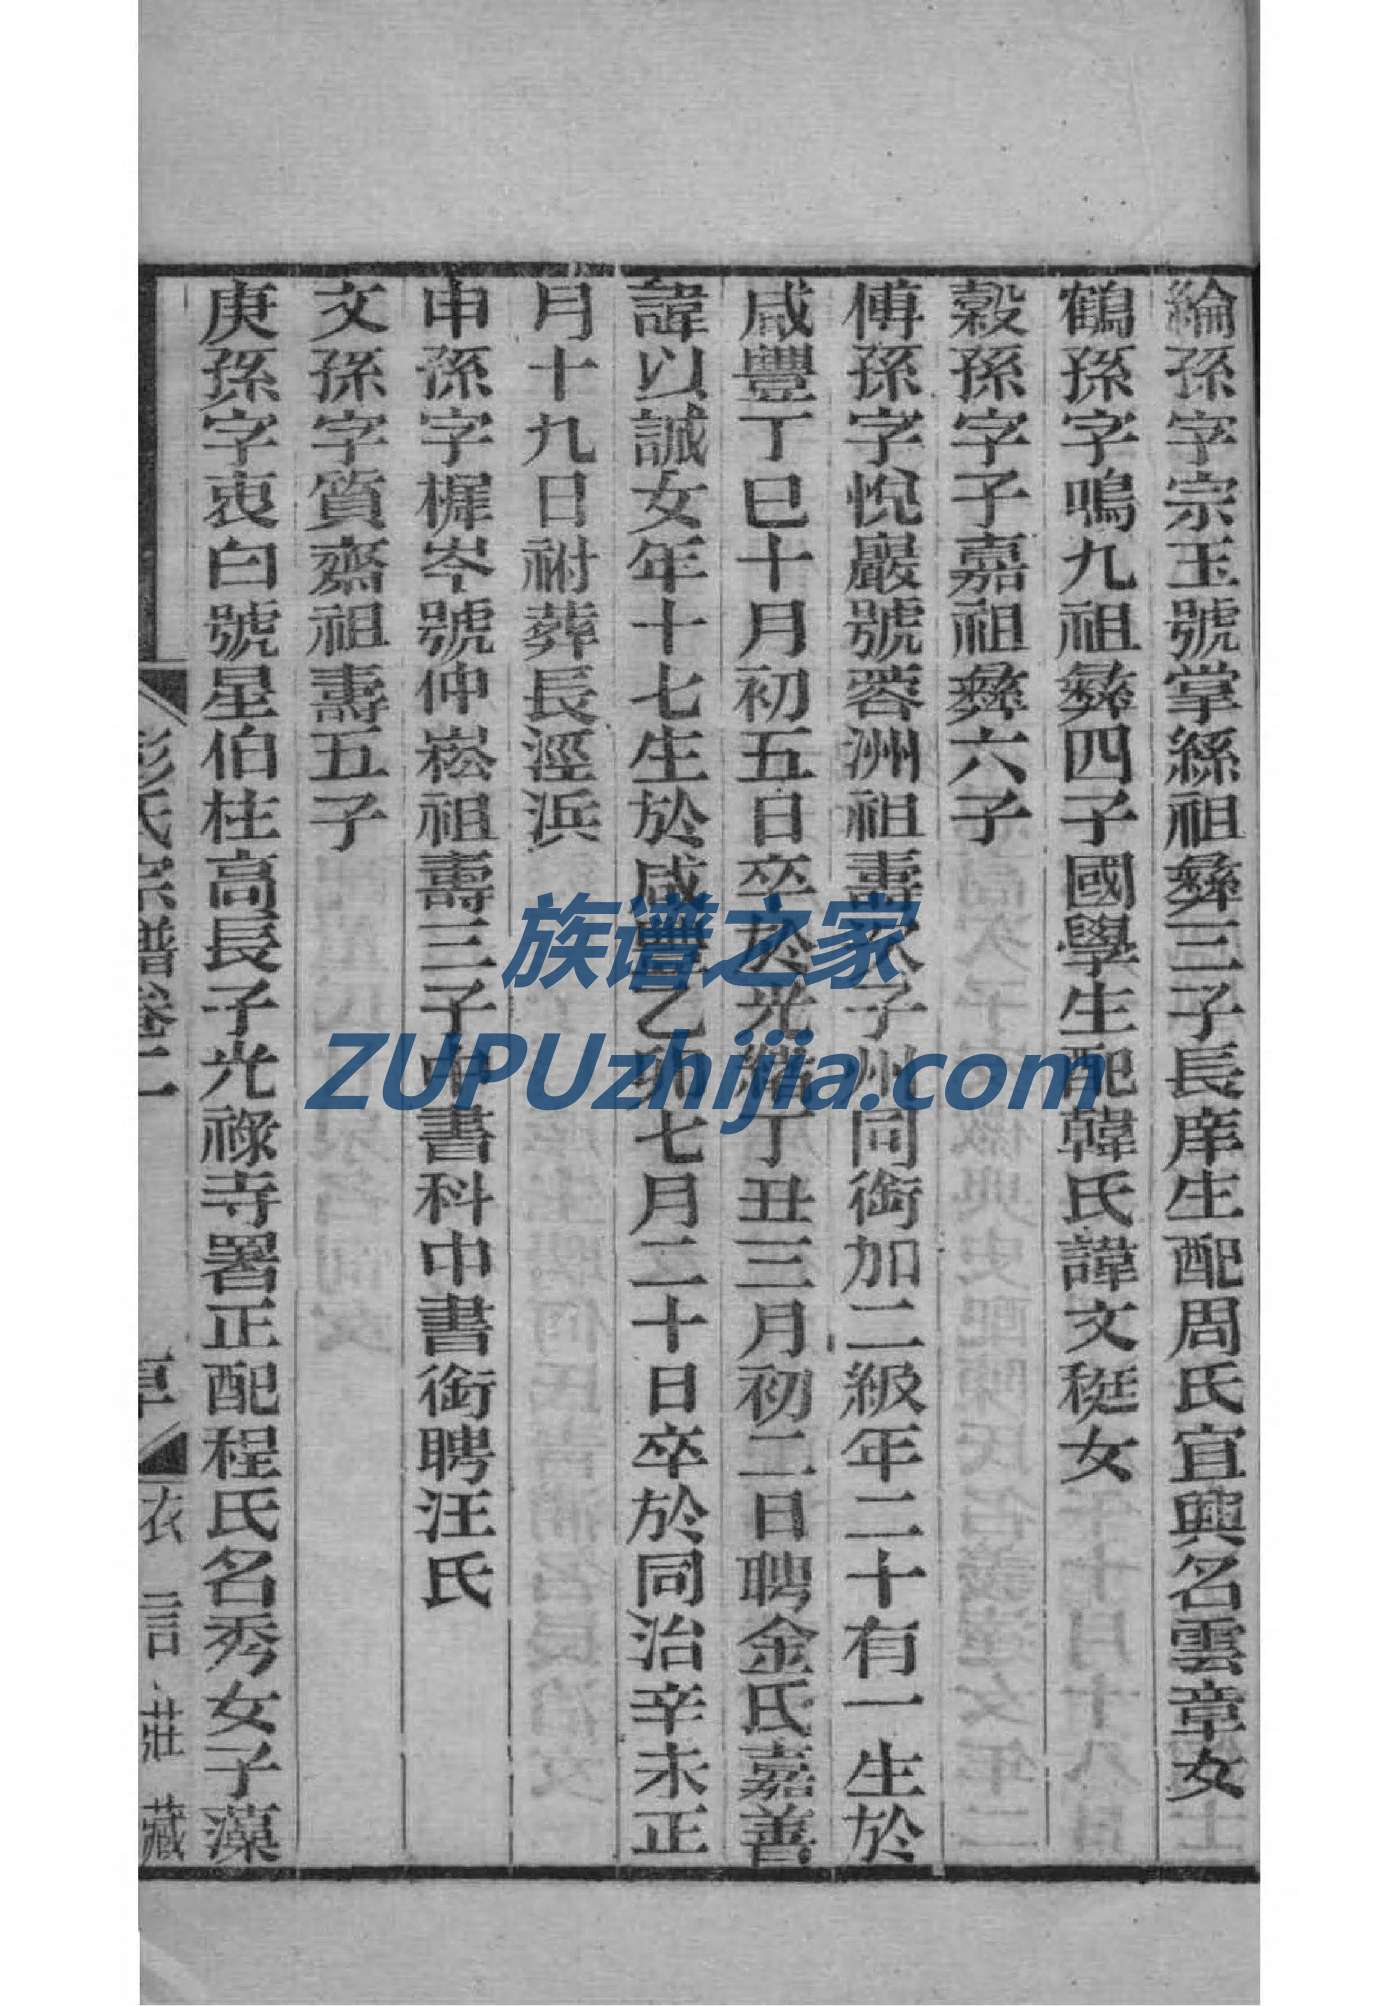 綸孫字宗玉號掌絲祖彝三子長庠生配周氏宜興名雲章女
鶴孫字鳴九祖彝四子國學生配韓氏諱文綎女
穀孫字子嘉祖彝六子
傅孫字悅巖號蓉洲祖壽次子州同銜加二級年二十有一生於
咸豐丁巳十月初五日卒於光緒丁丑三月初二日聘金氏嘉善
諱以誠女年十七生於咸豐乙卯七月二十日卒於同治辛未正
月十九日祔葬長涇浜
申孫字樨岑號仲崧祖壽三子中書科中書銜聘汪氏
文孫字質齋祖壽五子
庚孫字衷白號星伯柱高長子光祿寺署正配程氏名秀女子藻
彭氏宗譜卷二
衣言莊藏
族谱之家
ZUPUzhijia.com